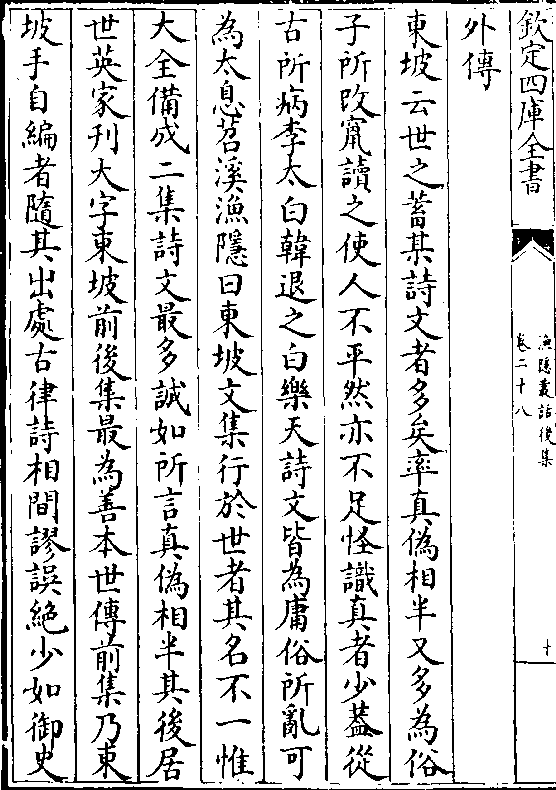 欽定四庫全書
漁隱叢話後集
卷二十八
十
外傳
東坡云世之蓄某詩文者多矣率真偽相半又多為俗
子所改竄讀之使人不平然亦不足怪識真者少蓋從
古所病李太白韓退之白樂天詩文皆為庸俗所亂可
為太息苕溪漁隱曰東坡文集行於世者其名不一惟
大全備成二集詩文最多誠如所言真偽相半其後居
世英家刊大字東坡前後集最為善本世傳前集乃東
坡手自編者隨其出處古律詩相間謬誤絶少如御史